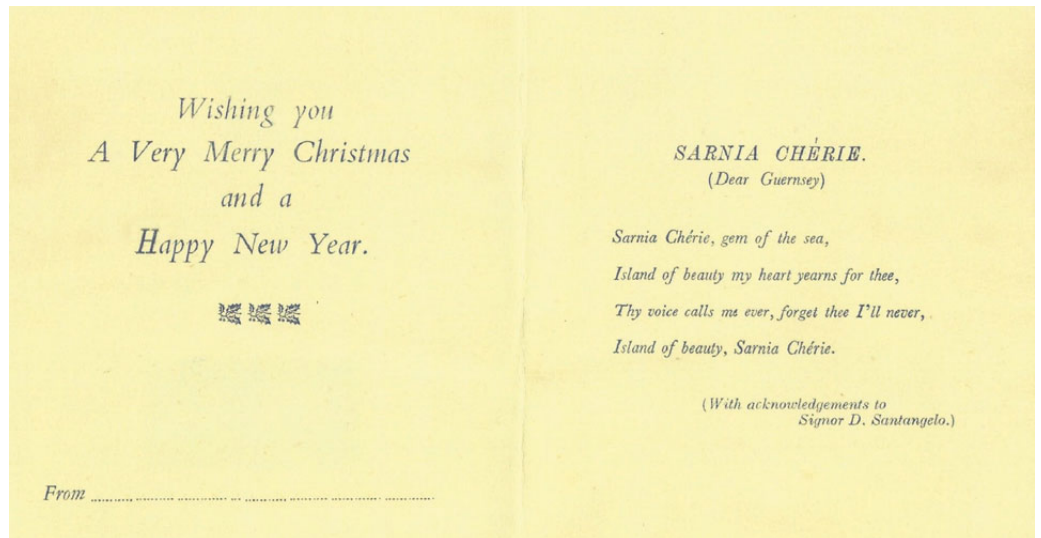 Wishing you
A Very Merry Christmas
and a
Happy New Year.
From
SARNIA CHÉRIE.
(Dear Guernsey)
Sarnia Chérie, gem of the sea,
Island of beauty my heart yearns for thee,
Thy voice calls me ever, forget thee I'll never,
Island of beauty, Sarnia Chérie.
(With acknowledgements to
Signor D. Santangelo.)